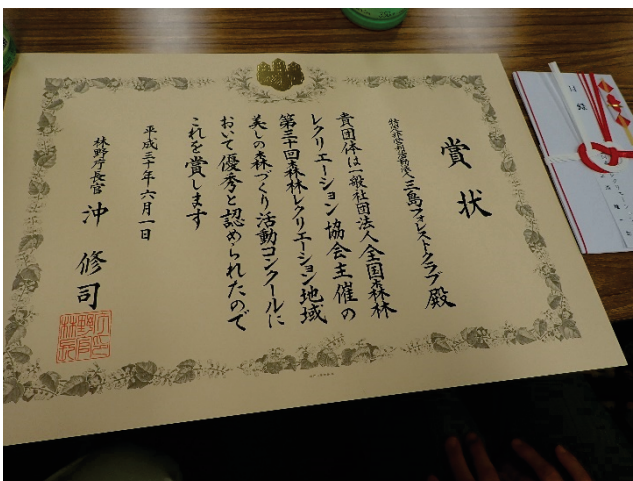 賞状
特定非営利活動法人三島フォレストクラブ殿
貴団体は一般社団法人全国森林
レクリエーション協会主催の
第三十回森林レクリエーション地域
美しの森づくり活動コンクールに
おいて優秀と認められたので
これを賞します
平成三十年六月一日
林野庁長官 沖修司
林野庁長官之印
目録